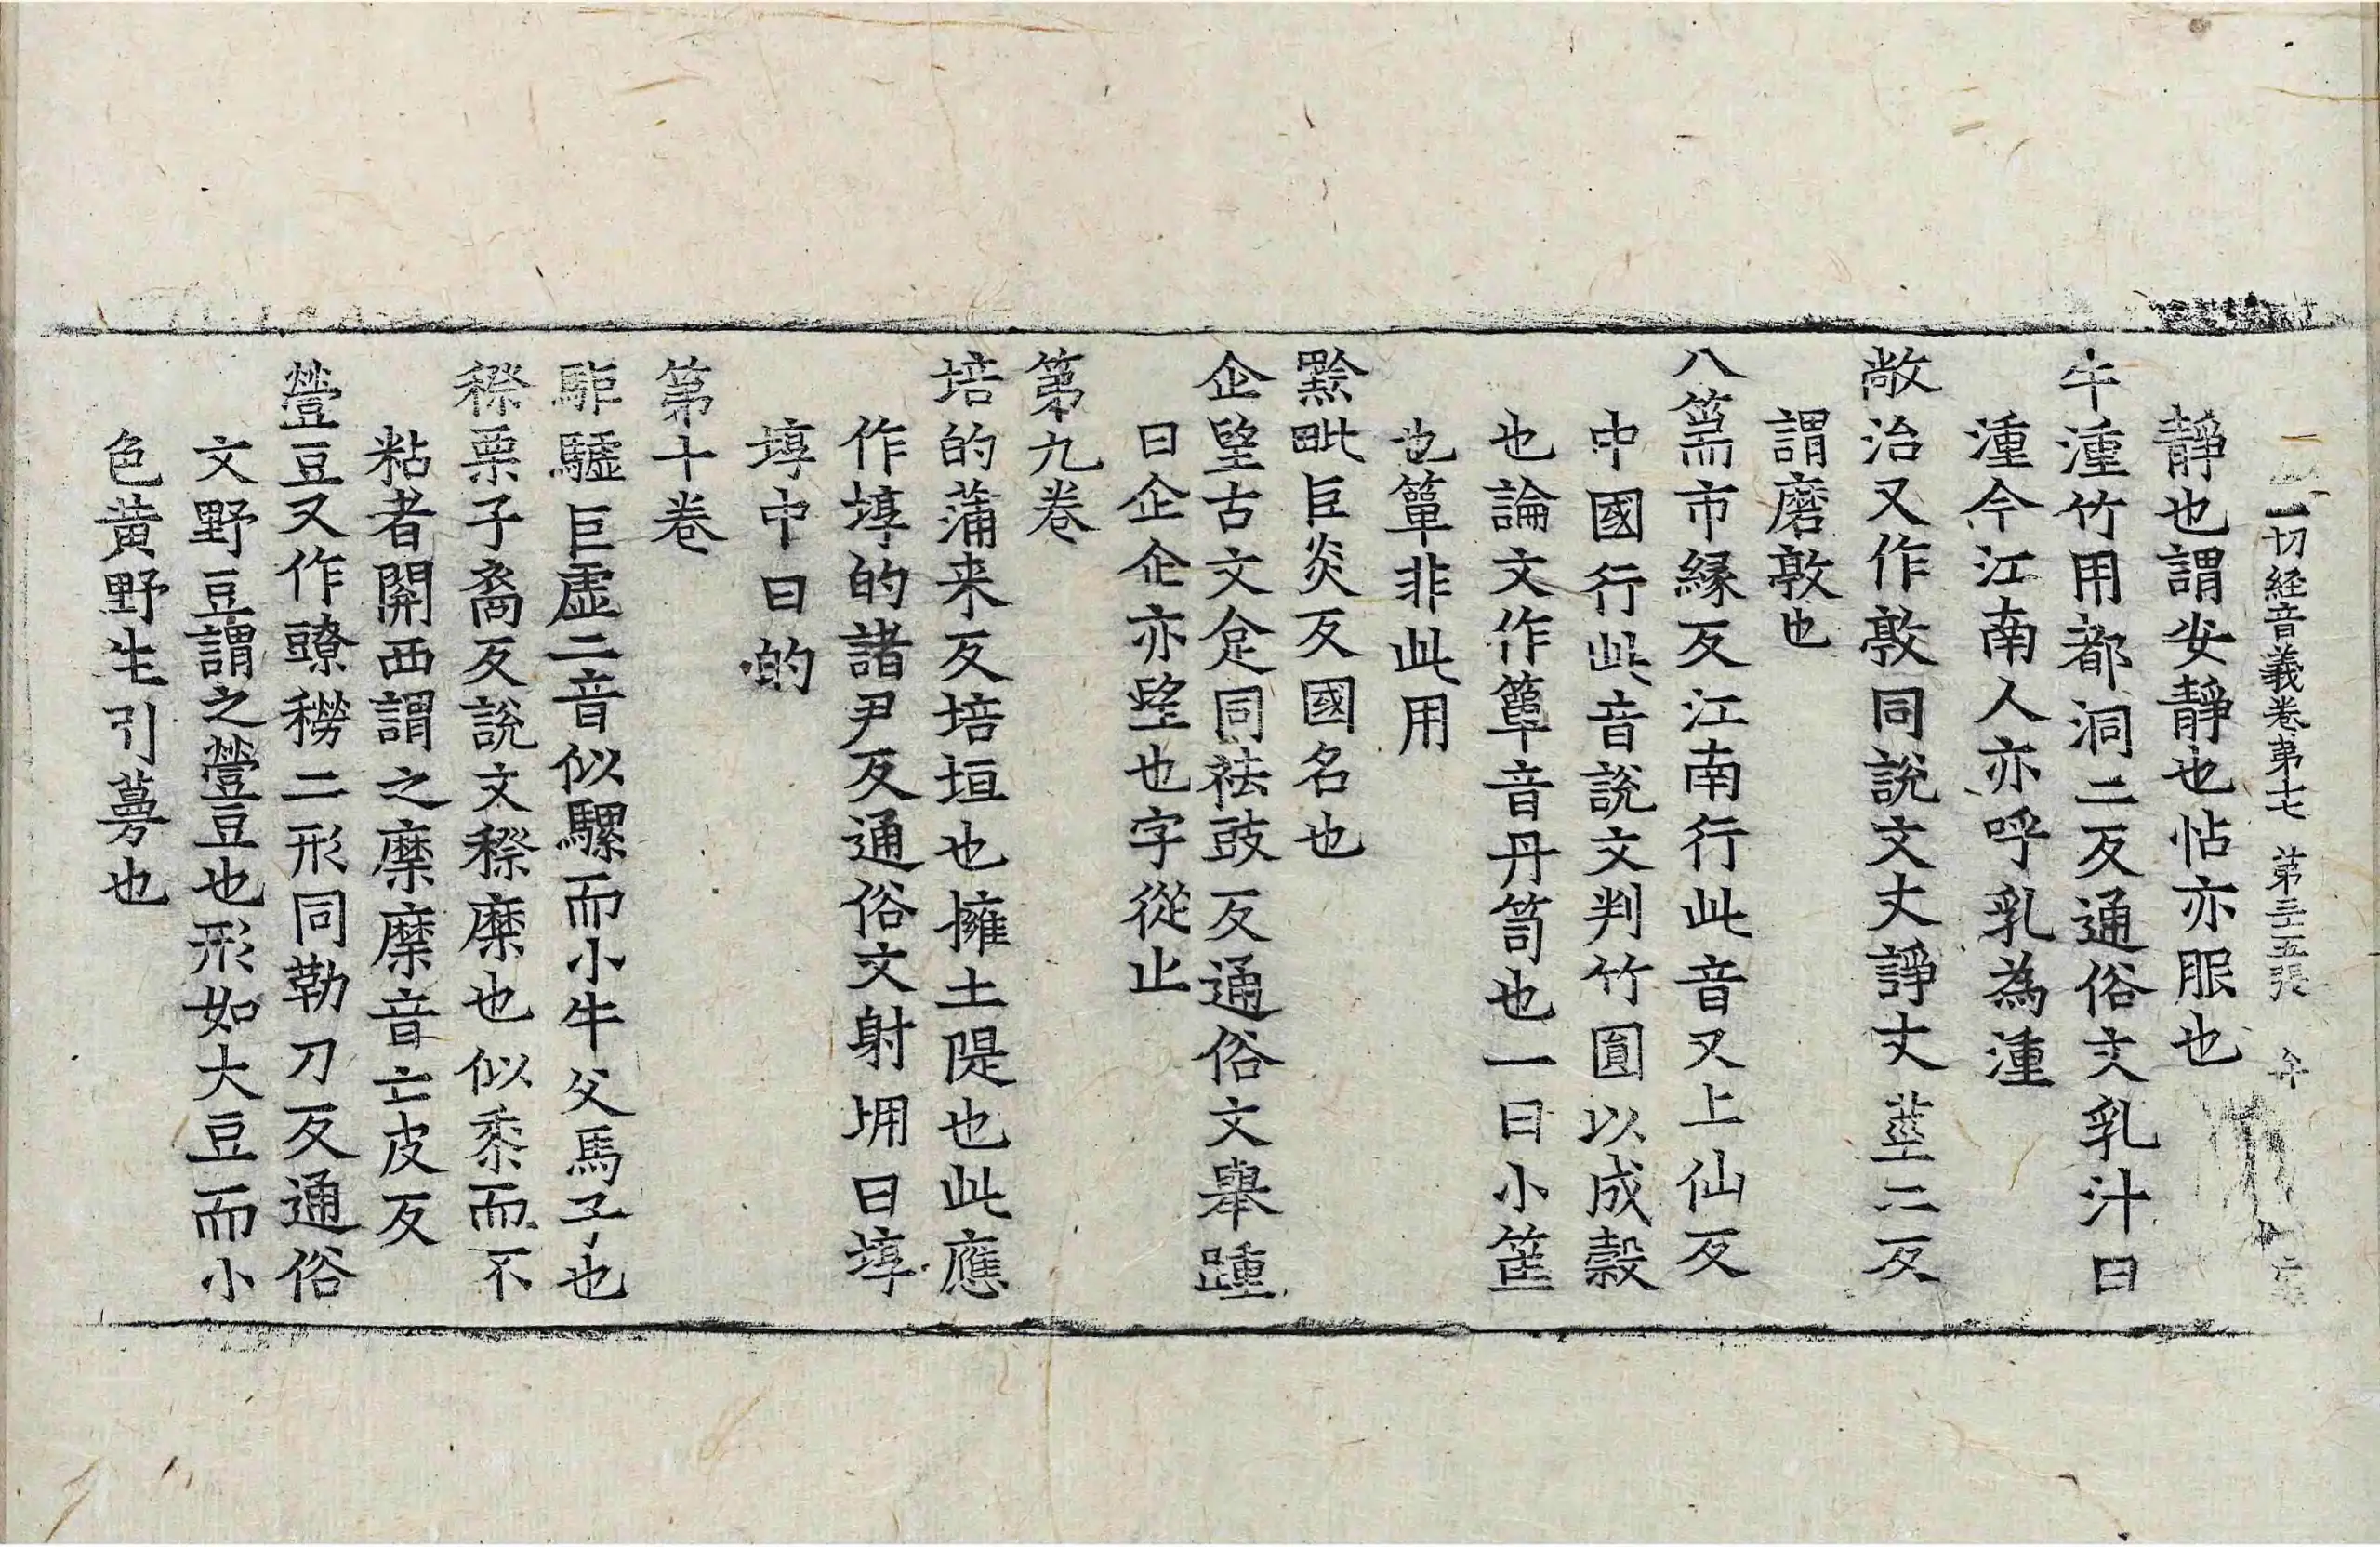 一切経音義卷第十七 第三十五張
靜也謂安靜也怗亦服也
牛湩竹用都洞二反通俗文乳汁曰
湩今江南人亦呼乳為湩
敞治又作敦同說文丈諍丈莖二反
謂磨敦也
八篅市緣反江南行此音又上仙反
中國行此音說文判竹圓以成穀
也論文作簞音丹笥也一曰小筐
也簞非此用
黔毗巨炎反國名也
企望古文𠈮同袪豉反通俗文舉踵
曰企企亦望也字從止
第九卷
培的蒲来反培垣也擁土隄也此應
作埻的諸尹反通俗文射堋曰埻
埻中曰的
第十卷
駏驉巨虛二音似騾而小牛父馬子也
穄粟子裔反說文穄穈也似黍而不
粘者關西謂之穈穈音亡皮反
䝁豆又作䝀䅭二形同勒刀反通俗
文野豆謂之䝁豆也形如大豆而小
色黃野生引蔓也